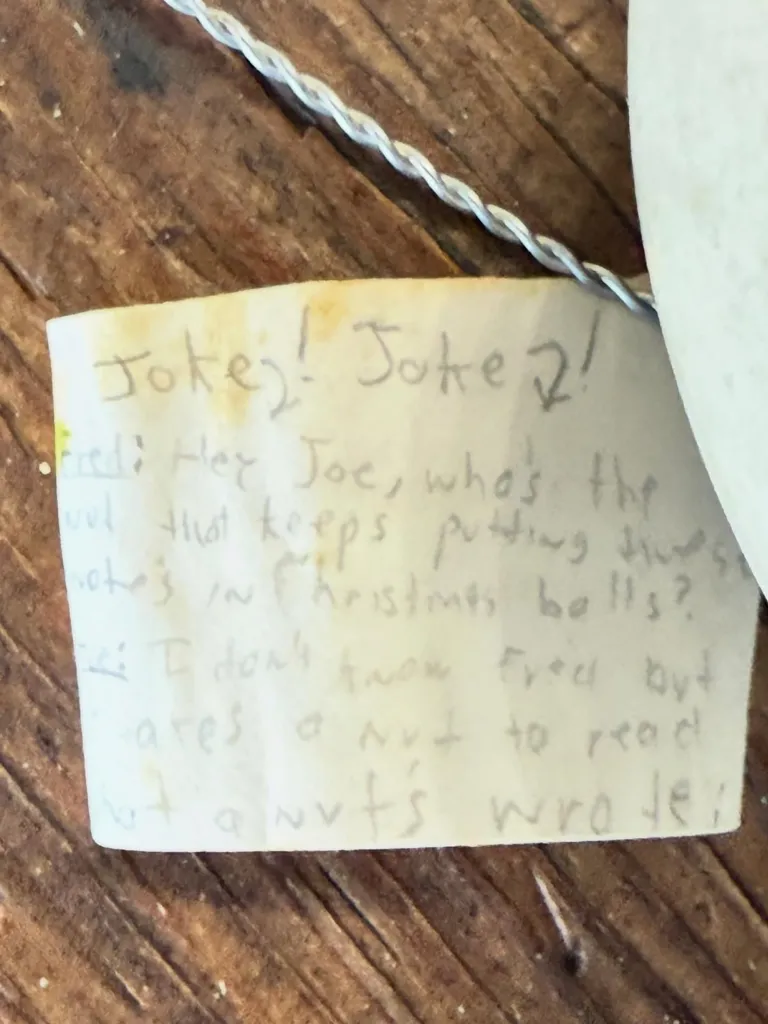 Joke↴! Joke↴!
Fred: Hey Joe, who's the
nut that keeps putting these
note's in Christmas balls?
Joe: I don't know Fred but
takes a nut to read
what a nut's wrote!